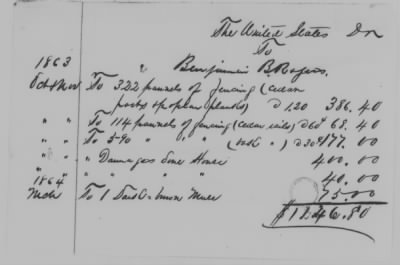 The United States Dr
To
1863 " Benjamin B Rogers.
Oct & Nov To 322 pannels of fencing (Cedar
posts & poplar planks) @ 1.20 386.40
" " To 114 pannels of fencing (Cedar rails) @ 60 68.40
" " To 590 " " " ( " ) @ 30 177.00
" " " Damages done House 400.00
" " " " " 40.00
1864 To 1 Mule 75.00
$1246.80